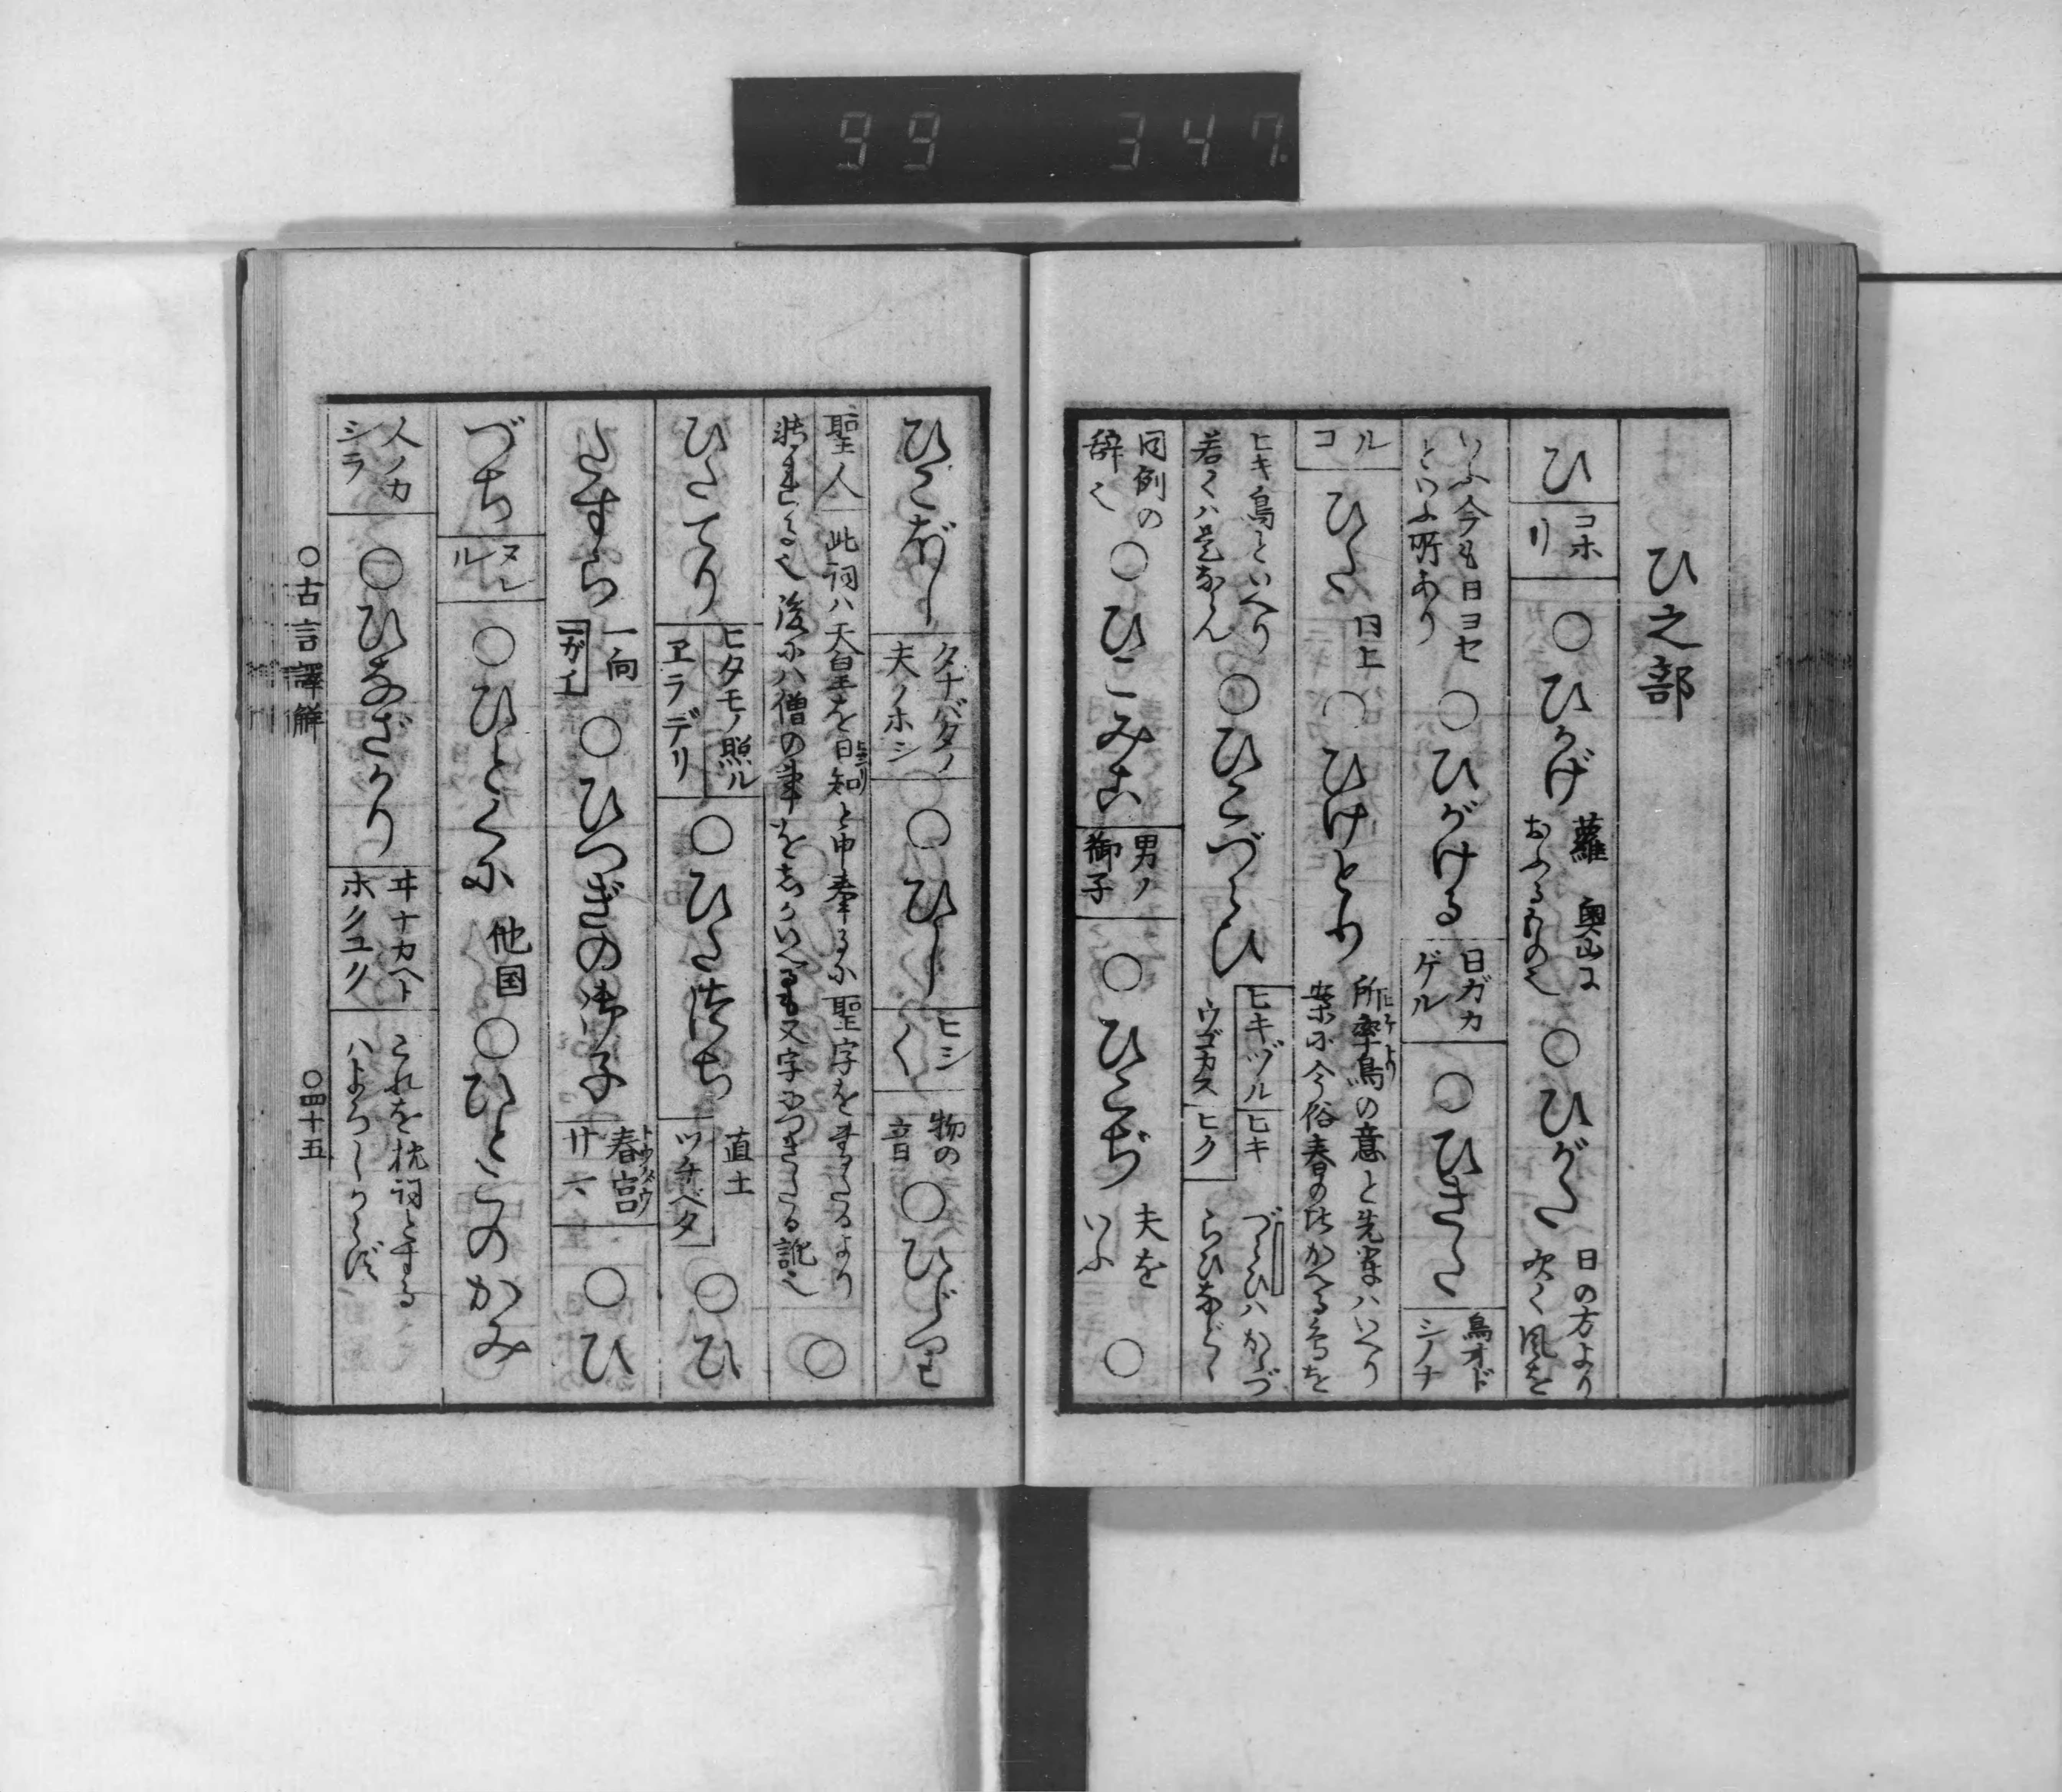 99 347.
ひ之部
ひ コホリ ○ひかげ 蘿 奥山に おふるもの也 ○ひがた 日の方より 吹く風を
いふ今も日ヨセ といふ所あり ○ひがける 日ガカゲル ○ひきた 鳥オド シノナ
ルコ ひた 同上 ○ひけとり 所率鳥の意と先輩ハいへり 案に今俗春の
ヒキ鳥といへり 若くハ是ならん ○ひこづらひ ヒキヅル ヒキウゴカス ヒク づらひハかゝづ らひなど
同例の 辞也 ○ひこみこ 男ノ 御子 ○ひこぢ 夫を いふ ○
ひこぼし タナバタノ 夫ノホシ ○ひし ヒシ く 物の 音 ○ひじり
聖人 此詞ハ天皇を日知と申奉るに聖字を より 後にハ僧の事を 又字につきたる訛也 ○
ひたてり ヒタモノ照ル ヱラデリ ○ひたつち 直土 ツチベタ ○ひ
たすら 一向 ○ひつぎの御子 春宮 トウグウ ○ひ
づち ヌレル ○ひとくに 他国 ○ひとこのかみ
人ノカシラ ○ひなざかり ヰナカヘト ホクユク これを枕詞とする ハよろしからず
○古言譯解 ○四十五